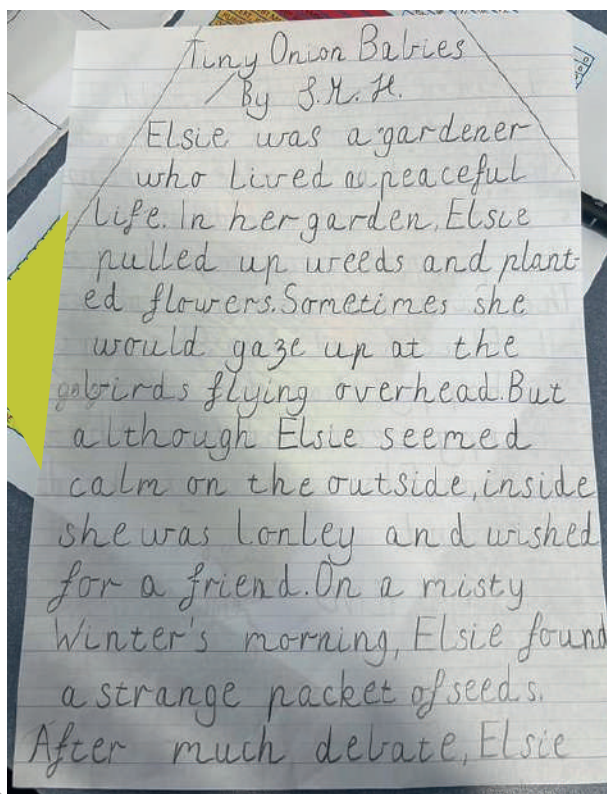 Tiny Onion Babies
By S.M.H.
Elsie was a gardener
who lived a peaceful
life. In her garden, Elsie
pulled up weeds and plant-
ed flowers. Sometimes she
would gaze up at the
birds flying overhead. But
although Elsie seemed
calm on the outside, inside
she was lonley and wished
for a friend. On a misty
Winter's morning, Elsie found
a strange packet of seeds.
After much debate, Elsie